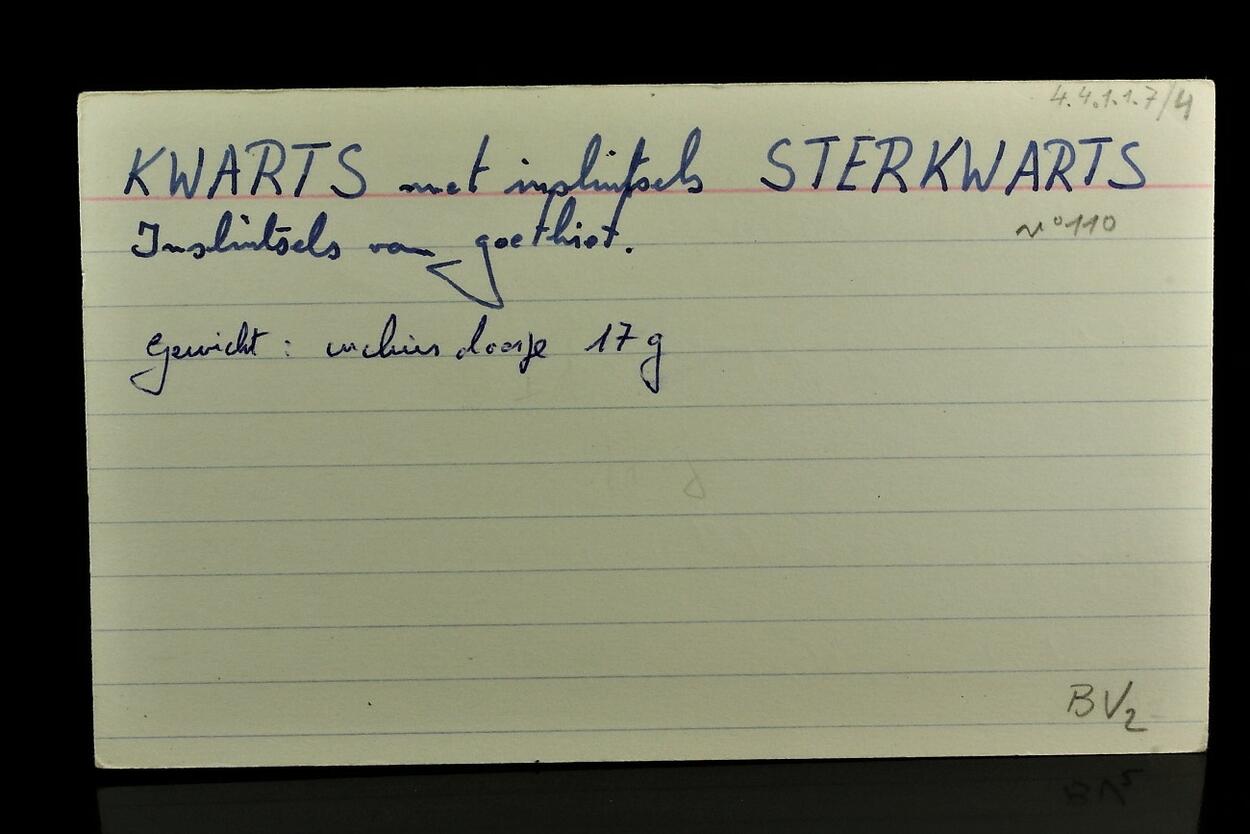 4.4.1.1.7/4
KWARTS met insluitsels STERKWARTS
Insluitsels van goethiet.
N°110
Gewicht: inclus doosje 17 g
BV2